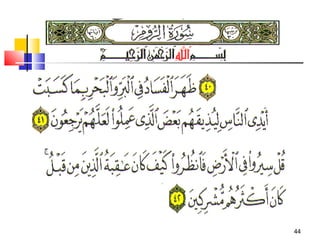 سُورَةُ الرُّومِ
بِسْمِ اللَّهِ الرَّحْمَٰنِ الرَّحِيمِ
٤٠ ظَهَرَ الْفَسَادُ فِي الْبَرِّ وَالْبَحْرِ بِمَا كَسَبَتْ
أَيْدِي النَّاسِ لِيُذِيقَهُم بَعْضَ الَّذِي عَمِلُوا لَعَلَّهُمْ يَرْجِعُونَ ٤١
قُلْ سِيرُوا فِي الْأَرْضِ فَانظُرُوا كَيْفَ كَانَ عَٰقِبَةُ الَّذِينَ مِن قَبْلُ ۚ
كَانَ أَكْثَرُهُم مُّشْرِكِينَ ٤٢
44